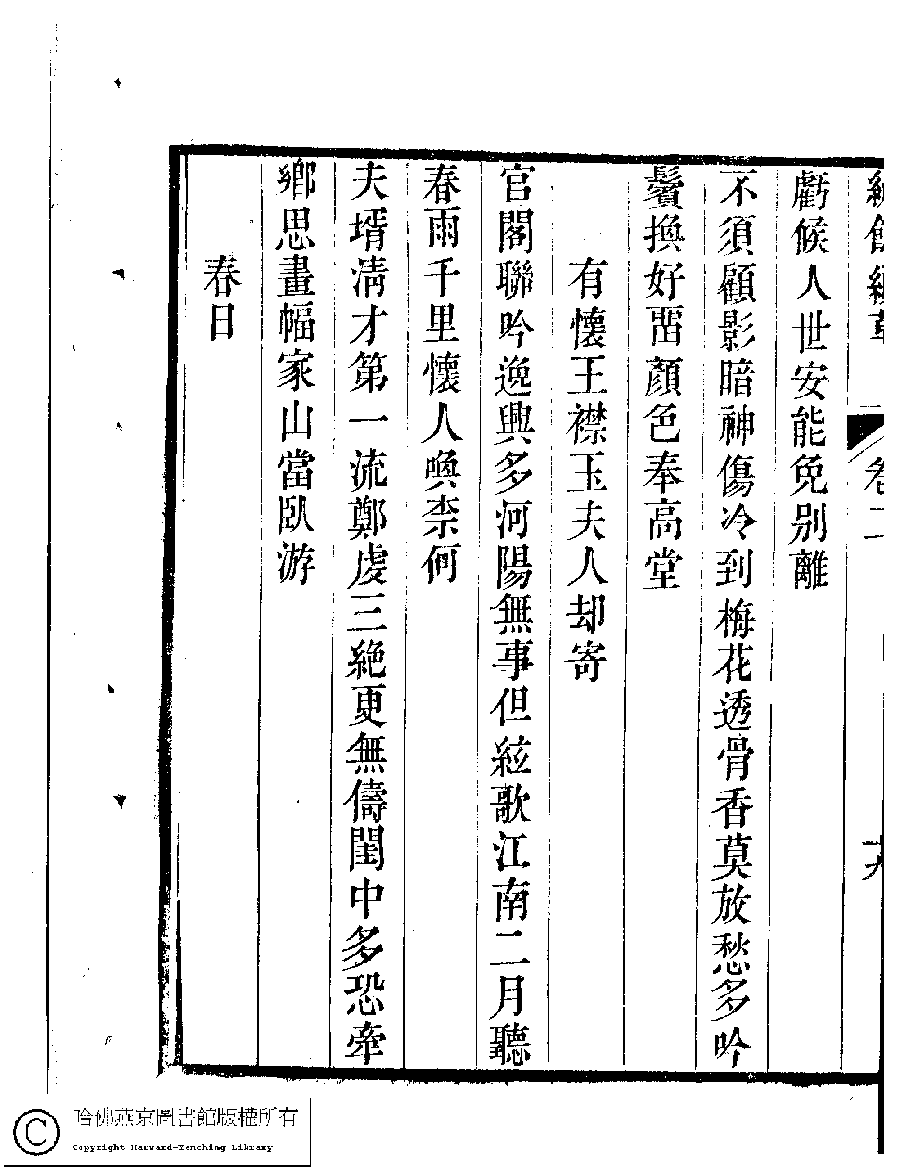 卷二
虧候人世安能免别離
不須顧影暗神傷冷到梅花透骨香莫放愁多吟
鬢換好畱顏色奉高堂
有懷王襟玉夫人却寄
官閣聯吟逸興多河陽無事但絃歌江南二月聽
春雨千里懷人喚柰何
夫壻清才第一流鄭虔三絶更無儔閨中多恐牽
鄉思畫幅家山當臥游
春日
哈佛燕京圖書館版權所有
Copyright Harvard-Yenching Library